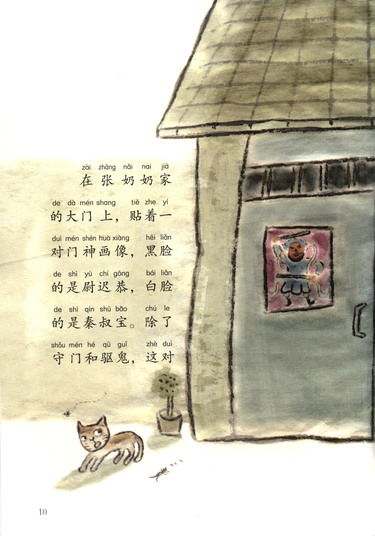 zài zhāng nǎi nai jiā
在张奶奶家
de dà mén shang tiē zhe yí
的大门上，贴着一
duì mén shén huà xiàng hēi liǎn
对门神画像，黑脸
de shì yù chí gōng bái liǎn
的是尉迟恭，白脸
de shì qín shū bǎo chú le
的是秦叔宝。除了
shǒu mén hé qū guǐ zhè duì
守门和驱鬼，这对
10